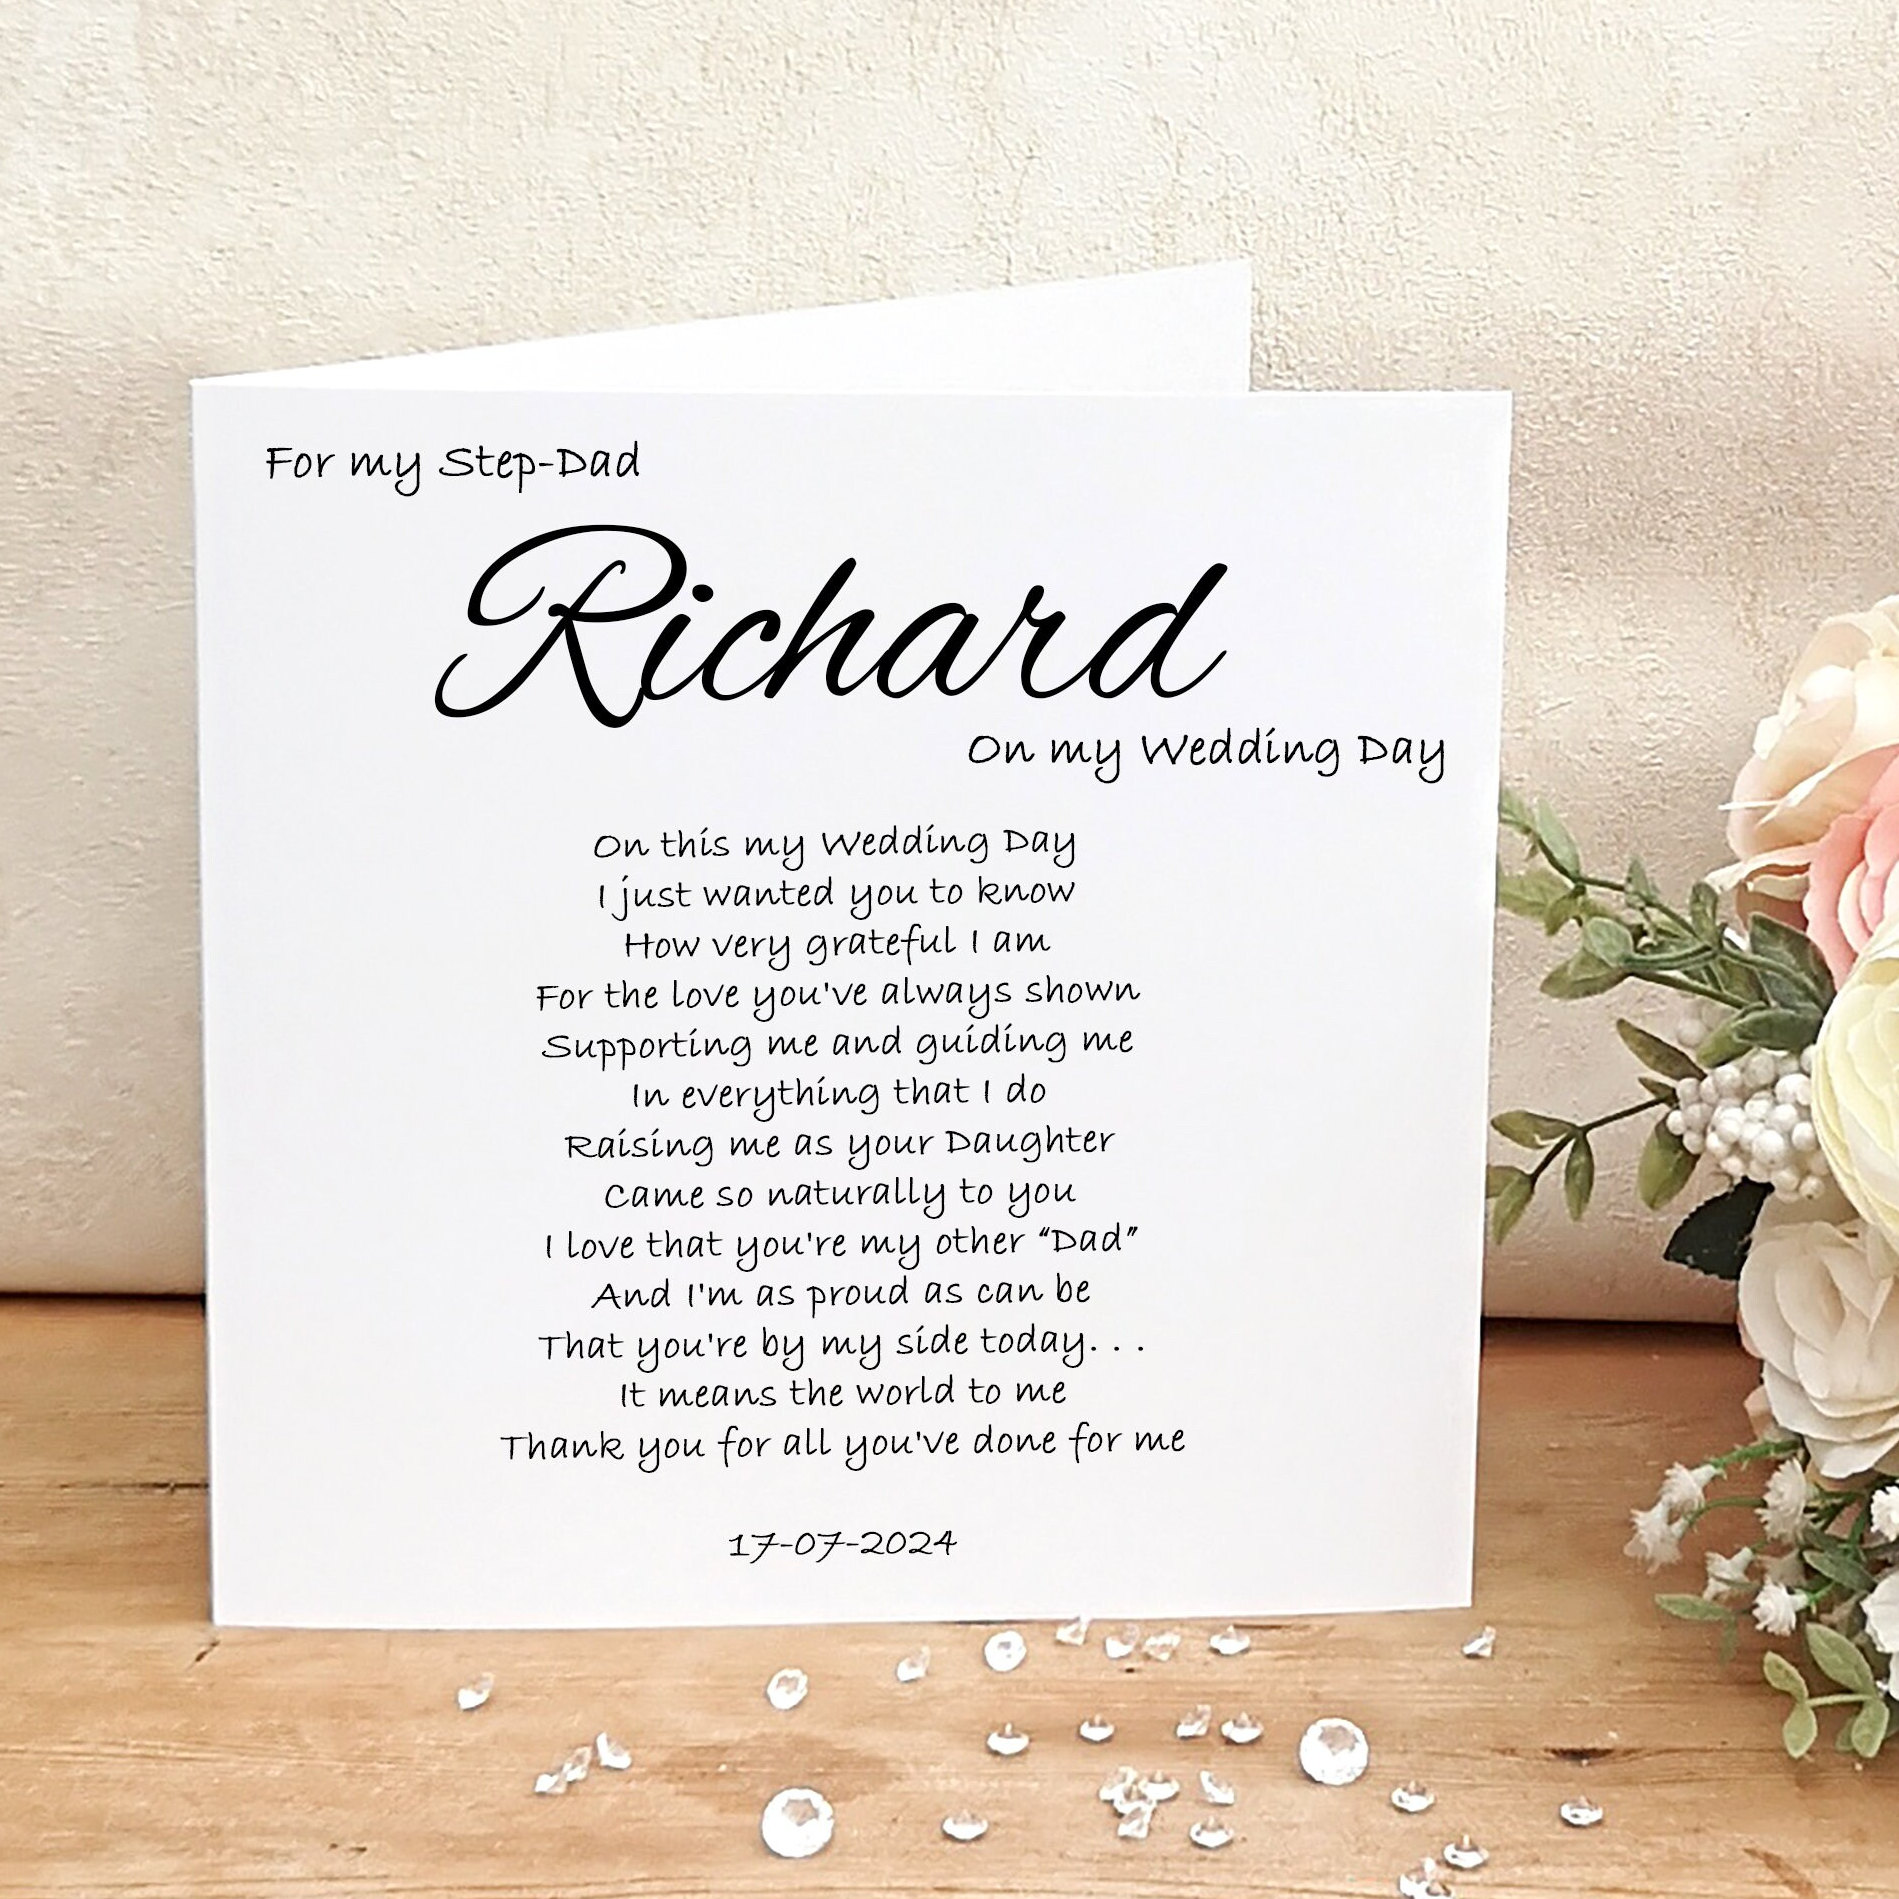 For my Step-Dad
Richard
On my Wedding Day
On this my Wedding Day
I just wanted you to know
How very grateful I am
For the love you've always shown
Supporting me and guiding me
In everything that I do
Raising me as your Daughter
Came so naturally to you
I love that you're my other “Dad”
And I'm as proud as can be
That you're by my side today. . .
It means the world to me
Thank you for all you've done for me
17-07-2024